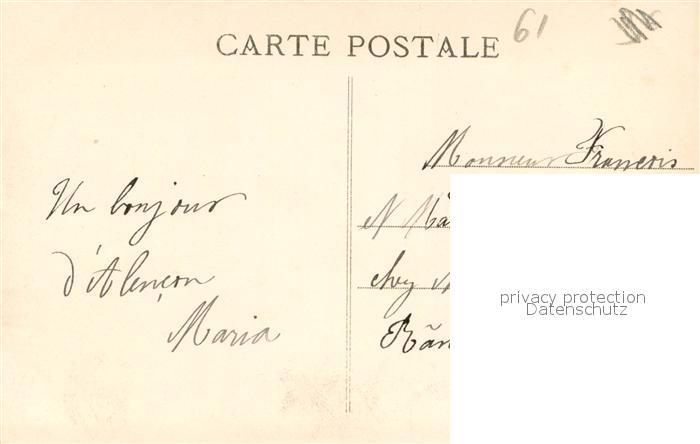 CARTE POSTALE
61
Un bonjour
d'Alençon
Maria
Monsieur François
chez
privacy protection
Datenschutz